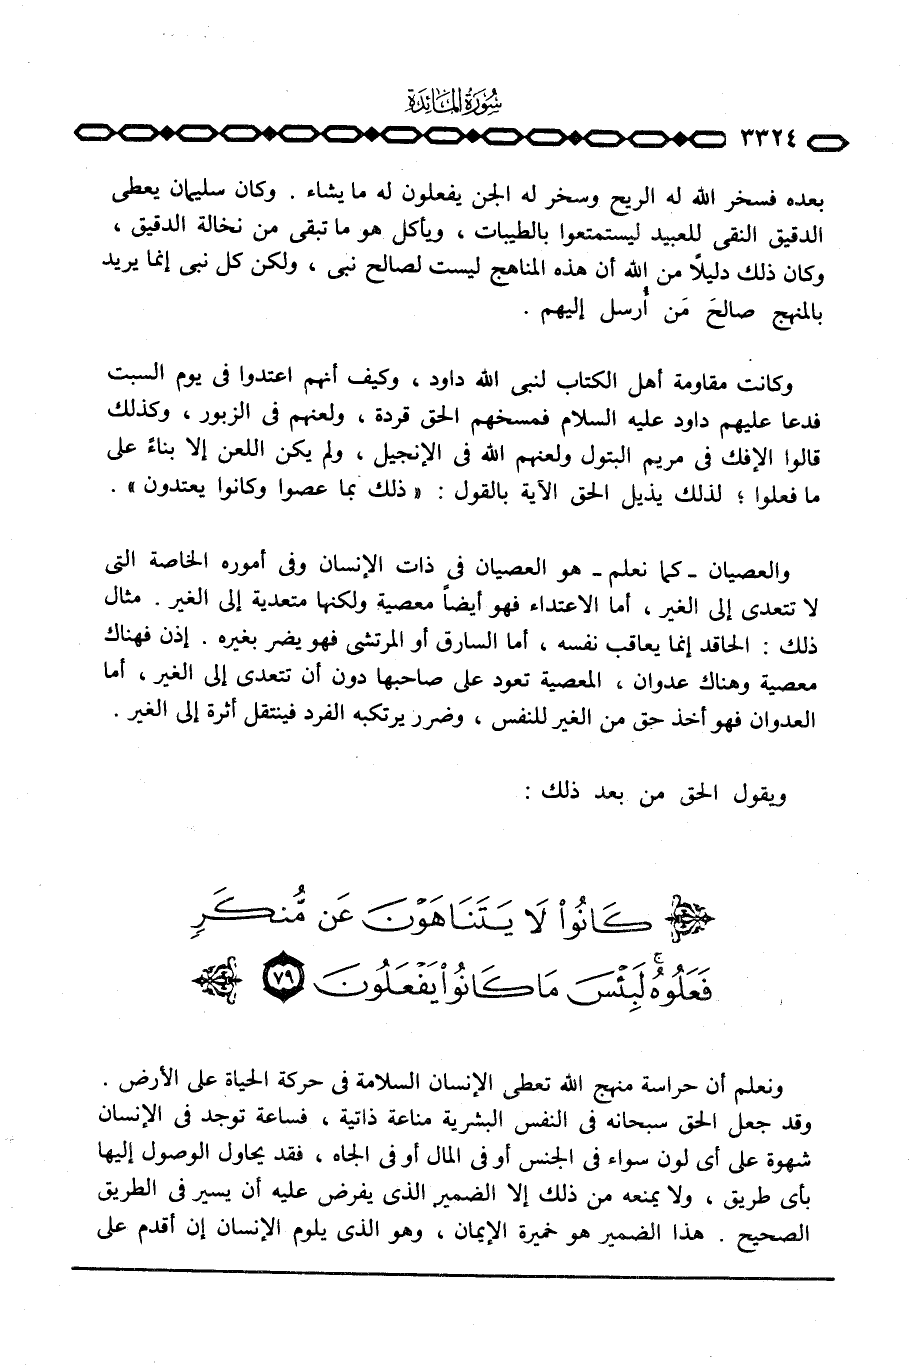 سُورَةُ المَائِدَة
٣٣٢٤
بعده فسخر الله له الريح وسخر له الجن يفعلون له ما يشاء . وكان سليمان يعطى
الدقيق النقى للعبيد ليستمتعوا بالطيبات ، ويأكل هو ما تبقى من نخالة الدقيق ،
وكان ذلك دليلاً من الله أن هذه المناهج ليست لصالح نبى ، ولكن كل نبى إنما يريد
بالمنهج صالحَ مَن أُرسل إليهم .
وكانت مقاومة أهل الكتاب لنبى الله داود ، وكيف أنهم اعتدوا فى يوم السبت
فدعا عليهم داود عليه السلام فمسخهم الحق قردة ، ولعنهم فى الزبور ، وكذلك
قالوا الإفك فى مريم البتول ولعنهم الله فى الإنجيل ، ولم يكن اللعن إلا بناءً على
ما فعلوا ؛ لذلك يذيل الحق الآية بالقول : « ذلك بما عصوا وكانوا يعتدون » .
والعصيان ـ كما نعلم ـ هو العصيان فى ذات الإنسان وفى أموره الخاصة التى
لا تتعدى إلى الغير ، أما الاعتداء فهو أيضاً معصية ولكنها متعدية إلى الغير . مثال
ذلك : الحاقد إنما يعاقب نفسه ، أما السارق أو المرتشى فهو يضر بغيره . إذن فهناك
معصية وهناك عدوان ، المعصية تعود على صاحبها دون أن تتعدى إلى الغير ، أما
العدوان فهو أخذ حق من الغير للنفس ، وضرر يرتكبه الفرد فينتقل أثرة إلى الغير .
ويقول الحق من بعد ذلك :
كَانُواْ لَا يَتَنَاهَوْنَ عَن مُّنكَرٍ
فَعَلُوهُ ۚ لَبِئْسَ مَا كَانُواْ يَفْعَلُونَ ٧٩
ونعلم أن حراسة منهج الله تعطى الإنسان السلامة فى حركة الحياة على الأرض .
وقد جعل الحق سبحانه فى النفس البشرية مناعة ذاتية ، فساعة توجد فى الإنسان
شهوة على أى لون سواء فى الجنس أو فى المال أو فى الجاه ، فقد يحاول الوصول إليها
بأى طريق ، ولا يمنعه من ذلك إلا الضمير الذى يفرض عليه أن يسير فى الطريق
الصحيح . هذا الضمير هو خميرة الإيمان ، وهو الذى يلوم الإنسان إن أقدم على